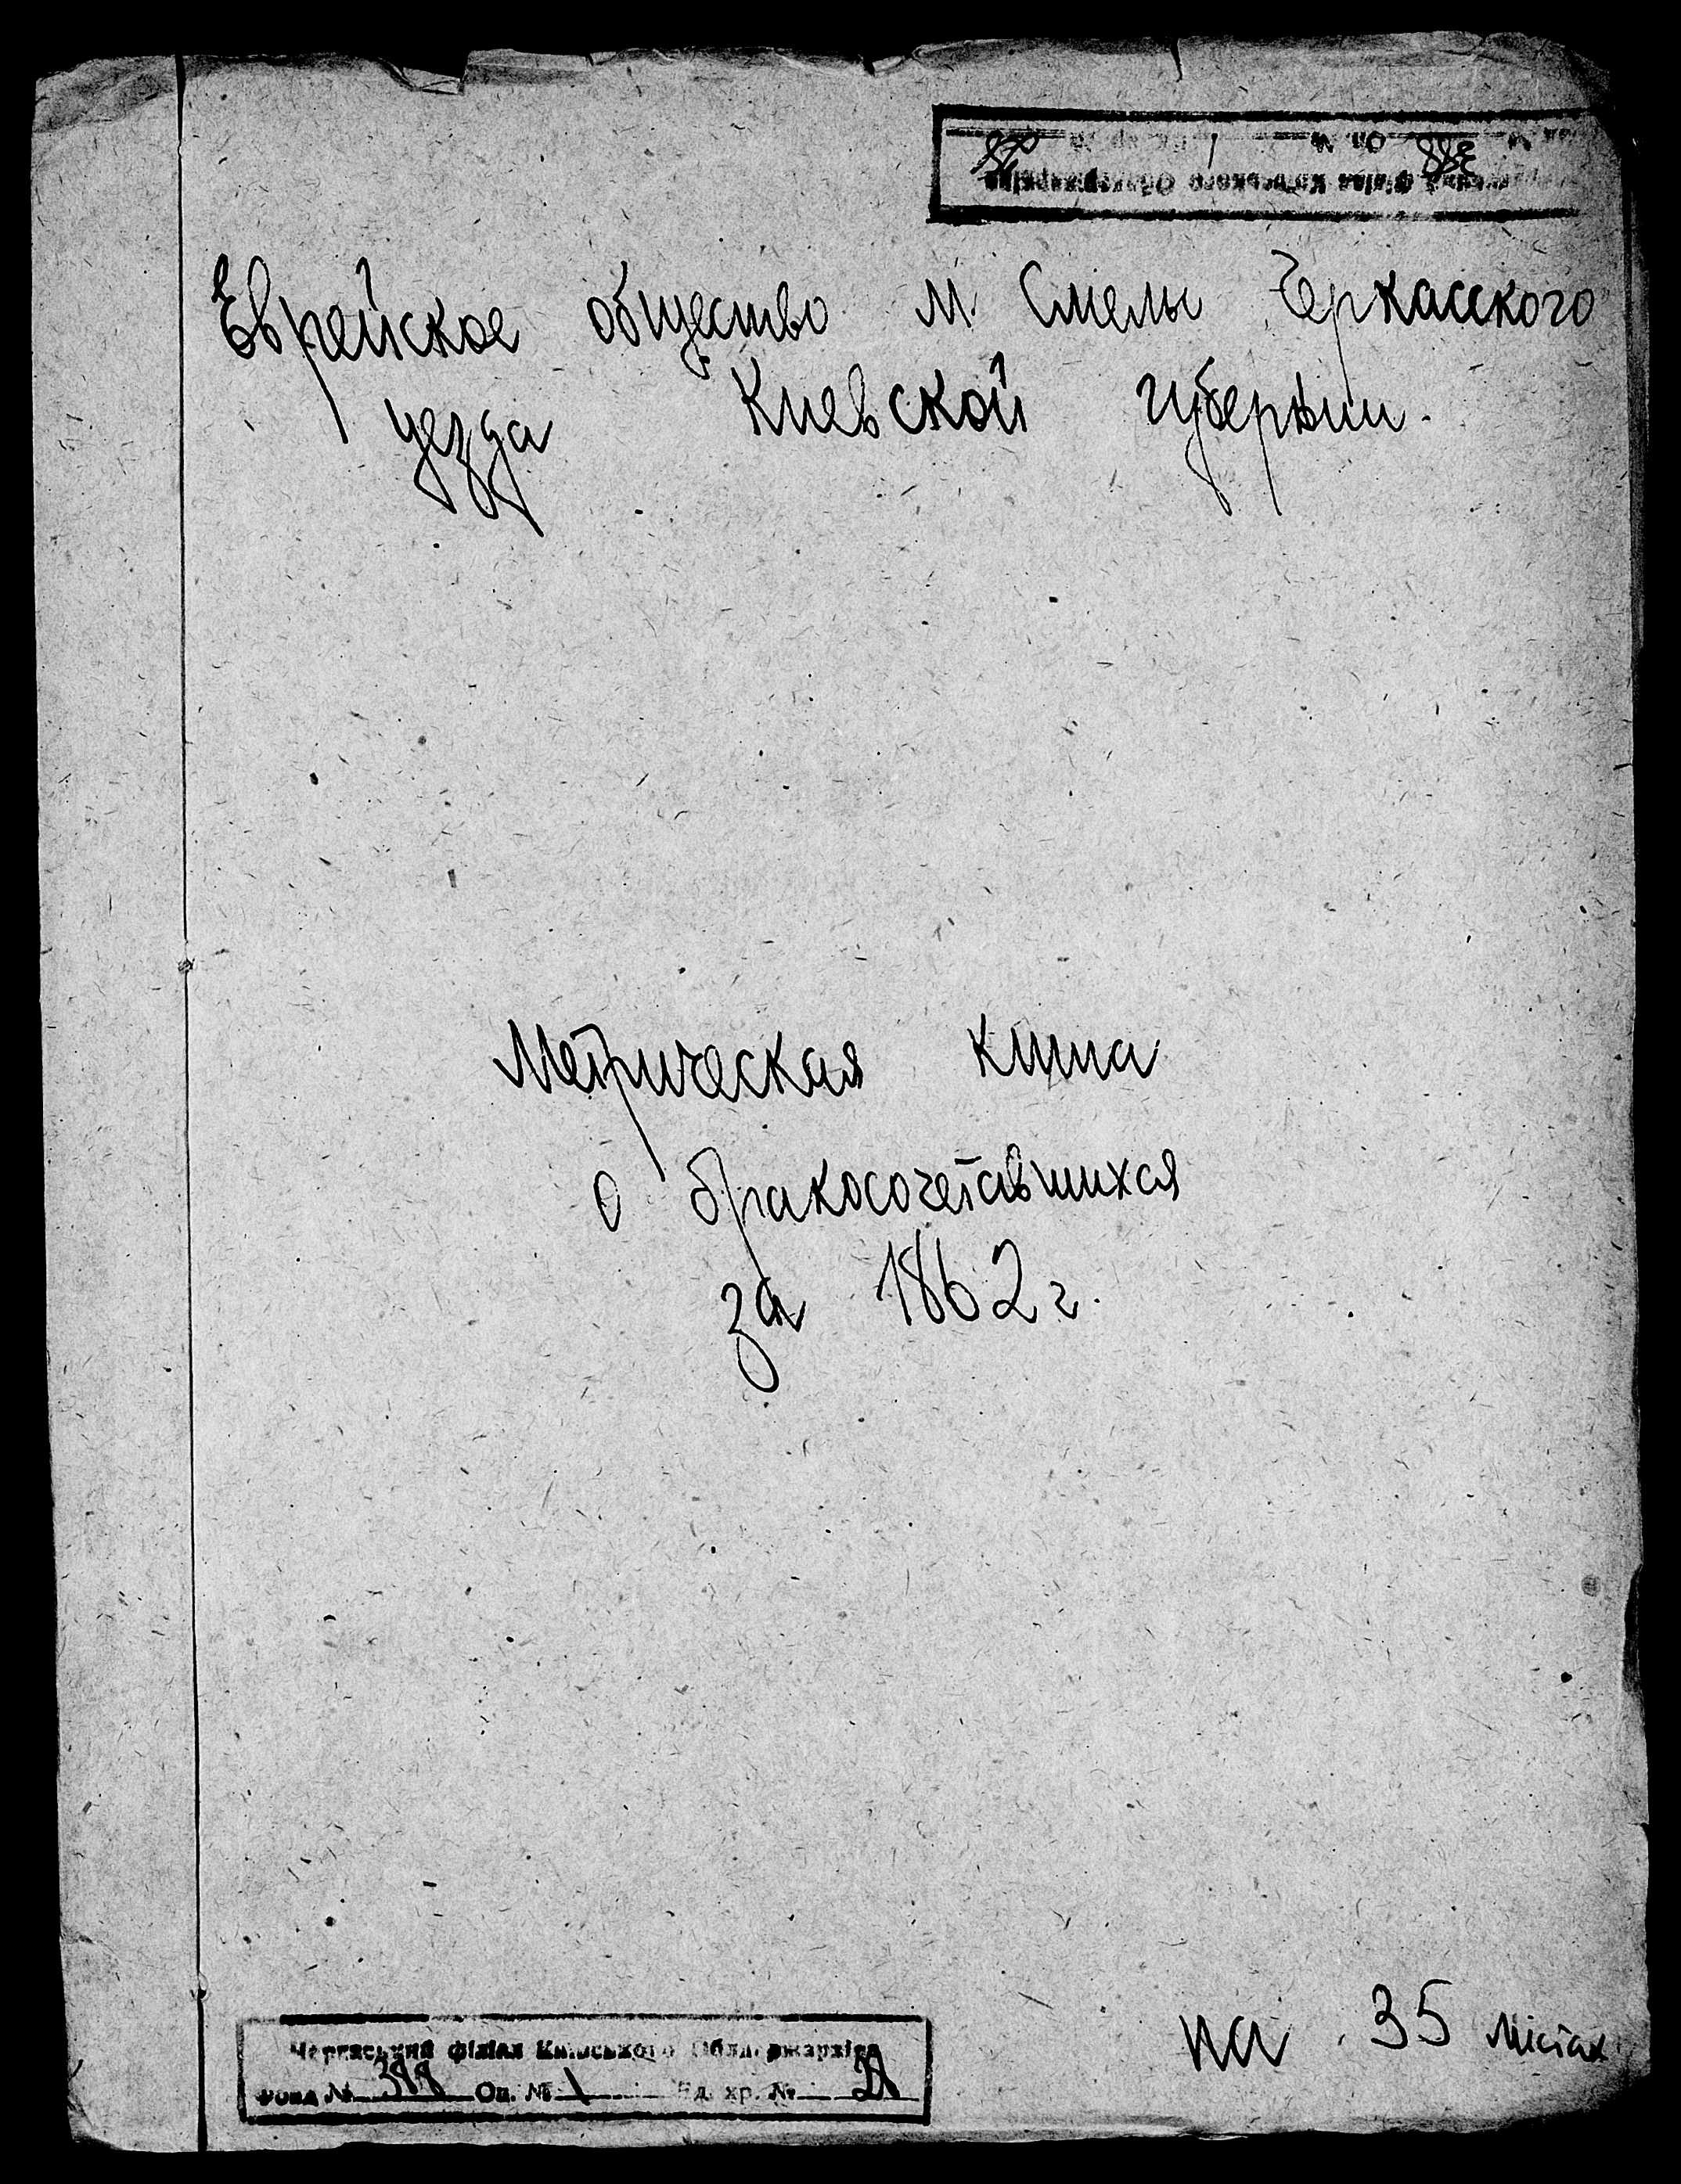 Еврейское общество м. Смелы Черкасского
уезда Киевской губернии.
Метрическая книга
о бракосочетавшихся
за 1862 г.
на 35 листах
Черкаський філіал Київського Облдержархіва
Фонд № Оп. № 1 Ед. хр. №